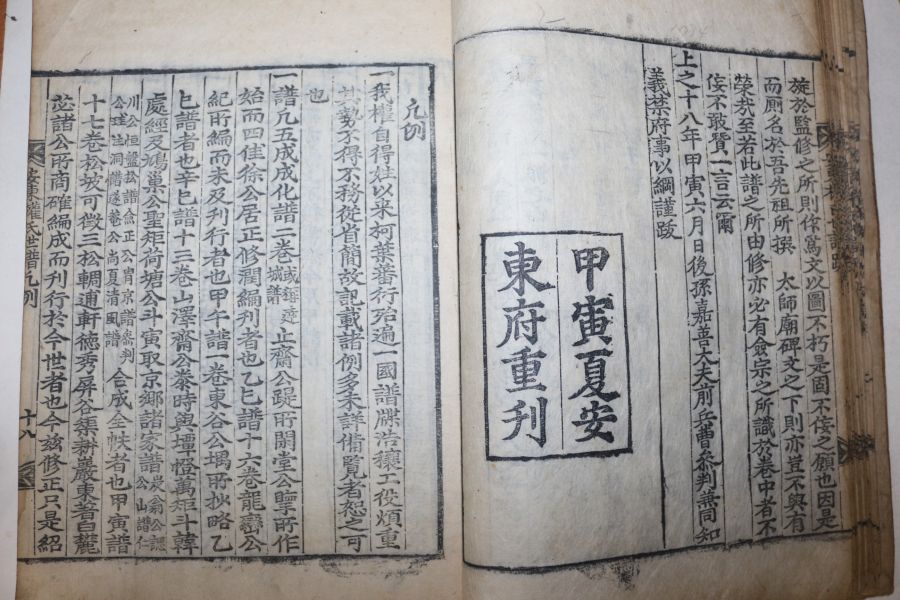 旋於監修之所則作寫文以圖不朽是固不佞之願也因是
而廁名於吾先祖所撰 太師廟碑文之下則亦豈不與有
榮哉至若此譜之所由修亦必有僉宗之所識於卷中者不
佞不敢贅一言云爾
上之十八年甲寅六月日後孫嘉善大夫前兵曹參判兼同知
義禁府事以綱謹跋
甲寅夏安
東府重刊
凡例
一我權自得姓以來柯葉蕃衍殆遍一國譜牒浩穰工役煩重
其勢不得不務從省簡故記載諸例多未詳備覽者恕之可
也
一譜凡五成成化譜二卷 止齋公踶所開堂公擥所作
始而四佳徐公居正修潤編刊者也乙巳譜十六卷龍巒公
紀所編而未及刊行者也甲午譜一卷東谷公堣所抄略乙
巳譜者也辛巳譜十三卷山澤齋公泰時與壇憕萬矩斗韓
處經及鳩巢公聖矩荷塘公斗寅取京鄉諸家譜
合成全帙者也甲寅譜
十七卷松坡可徵三松輖通軒德秀屏谷榘耕巖東著白麓
苾諸公所商確編成而刊行於今世者也今玆修正只是紹
安東權氏世譜凡例
十八